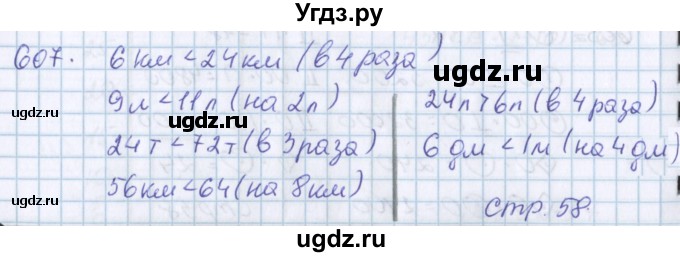 Угдз.ру
607. 6 км < 24 км (в 4 раза)
9 л < 11 л (на 2 л)
24 т < 72 т (в 3 раза)
56 км < 64 (на 8 км)
24 л > 6 л (в 4 раза)
6 дм < 1 м (на 4 дм)
стр. 58
ugdz.ru
ugdz.ru
ugdz.ru
ugdz.ru
ugdz.ru
ugdz.ru
ugdz.ru
ugdz.ru